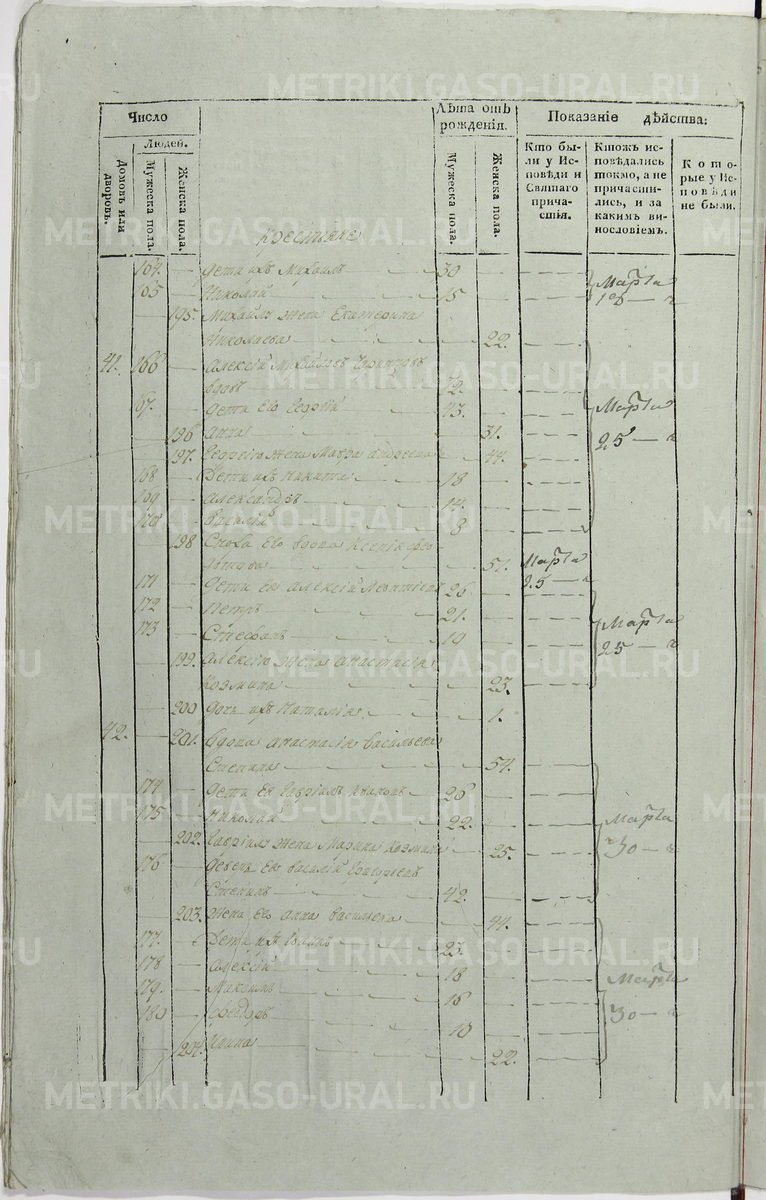 METRIKI.GASO-URAL.RU
Число
Людей.
Домовъ или дворовъ.
Мужеска пола.
Женска пола.
Лѣта отъ рожденія.
Мужеска пола.
Женска пола.
Показаніе дѣйства:
Кто бы-
ли у Ис-
повѣди и
Святаго
прича-
стія.
Ктожъ ис-
повѣдались
токмо, а не
причасти-
лись, и за
какимъ ви-
нословіемъ.
Кото-
рые у Ис-
повѣди
не были.
Крестьяне
164. Дети ихъ Михаилъ 30 Марта
165 Николай 15 18 — а
195. Михаила жена Екатерина
Николаева 22.
41. 166 Алексѣй Михайловъ
вдовъ 72.
67. Дети Его Георгій 43. Марта
196 Анна 31. 25 — а
197. Георгію жена Мавра Андреева 44.
168 Дети ихъ Никита 18
169 Александръ 14.
170 Василій 8
198 Сноха Его вдова Ксенія
51. Марта
25 — а
171 Дети ея Алексѣй 26
172 Петръ 21. Марта
173 Стефанъ 10 25 — а
199. Алексію жена Анастасія
Козмина 23.
200 Дочь ихъ Наталія 1.
42. 201. Вдова Анастасія Васильева
Степина 54.
174 Дети Ея Гавріилъ 26
175 Николай 22. Марта
202. Гавріила жена Марина Козмина 25. 30 — а
176 Деверь Ея Василій Григорьевъ
Степинъ 42.
203. Жена Его Анна Васильева 44.
177. Дети ихъ 23.
178 Алексѣй 18 Марта
179. Максимъ 15 30 — а
180 Ѳедоръ 10
204. 22.